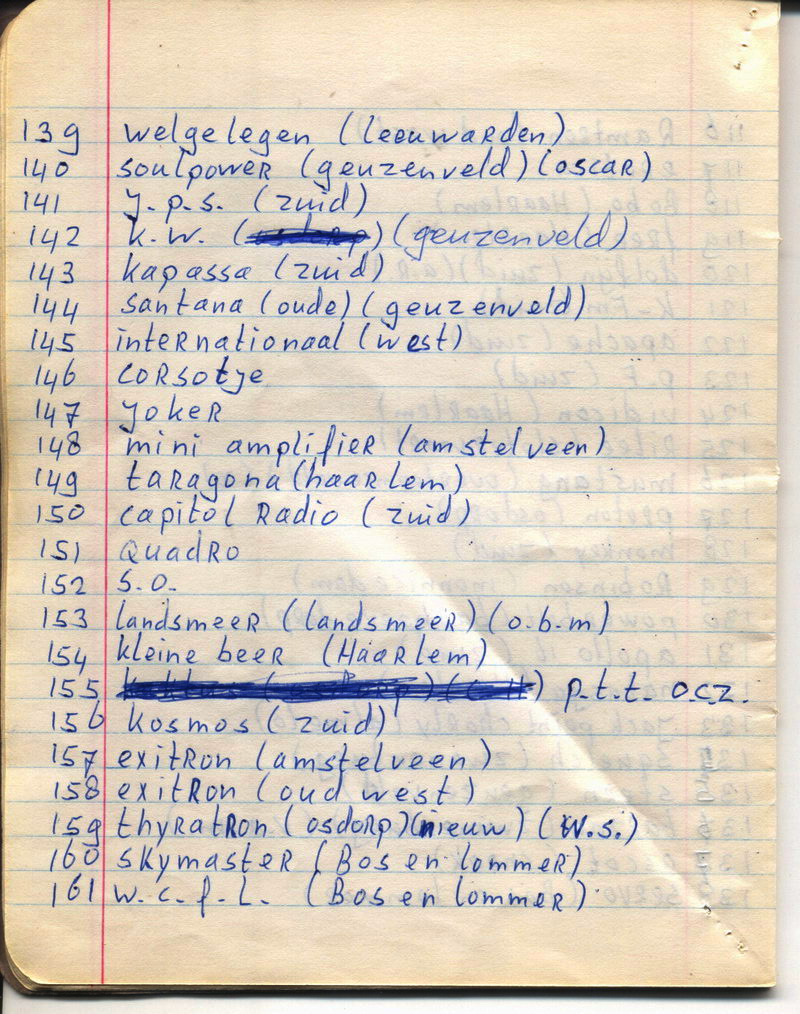 139 welgelegen (leeuwaRden)
140 soulpoweR (geuzenveld) (oscaR)
141 y.p.s. (zuid)
142 k.w. (osdoRp) (geuzenveld)
143 kapassa (zuid)
144 santana (oude) (geuzenveld)
145 inteRnationaal (west)
146 coRsotje
147 jokeR
148 mini amplifieR (amstelveen)
149 taRagona (haaRlem)
150 capitol Radio (zuid)
151 QuadRo
152 S.O.
153 landsmeeR (landsmeeR) (o.b.m)
154 kleine beeR (HaaRlem)
155 p.t.t. o.c.z.
156 kosmos (zuid)
157 exitRon (amstelveen)
158 exitRon (oud west)
159 thyRatRon (osdoRp) (nieuw) (W.S.)
160 skymasteR (Bos en lommeR)
161 w.c.f.L. (Bos en lommeR)